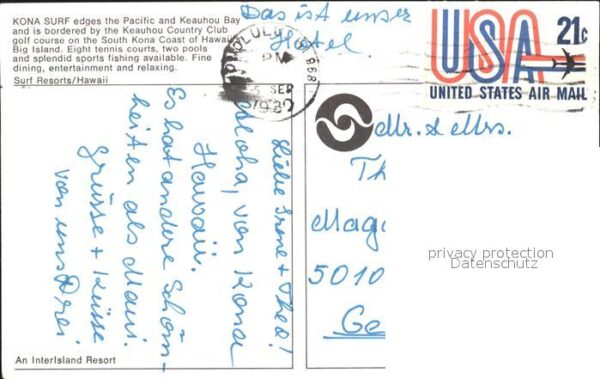 KONA SURF edges the Pacific and Keauhou Bay
and is bordered by the Keauhou Country Club
golf course on the South Kona Coast of Hawaii,
Big Island. Eight tennis courts, two pools
and splendid sports fishing available. Fine
dining, entertainment and relaxing.
Surf Resorts/Hawaii
Das ist unser
Hotel.
HONOLULU, HI
PM
SEP
1980
USA 21c
UNITED STATES AIR MAIL
Liebe Irene + Theo!
Aloha, von Kona
Hawaii.
Es hat andere Schön-
heiten als Maui.
Grüsse + Küsse
von uns Drei
Mr. & Mrs.
Th
Magi
5010
Ge
privacy protection
Datenschutz
An InterIsland Resort